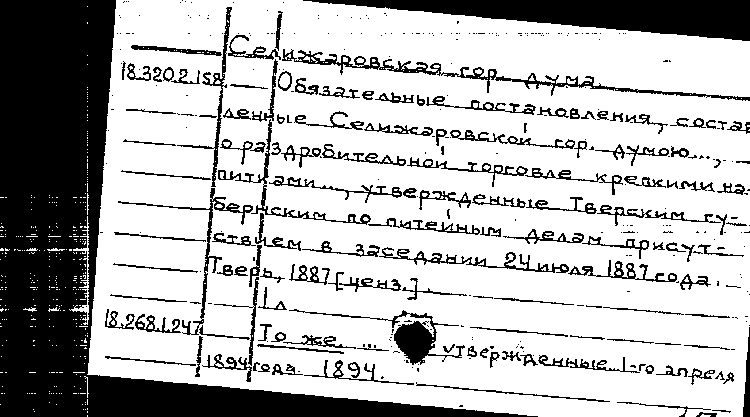 Селижаровская гор. дума.
18.320.2.158. Обязательные постановления, состав
ленные Селижаровской гор. думою...,
о раздробительной торговле крепкими на-
питками..., утвержденные Тверским гу-
бернским по питейным делам присут-
ствием в заседании 24 июля 1887 года.
Тверь, 1887 [ценз.].
1 л
18.268.1.247 То же. ... утвержденные...1-го апреля
1894 года 1894.